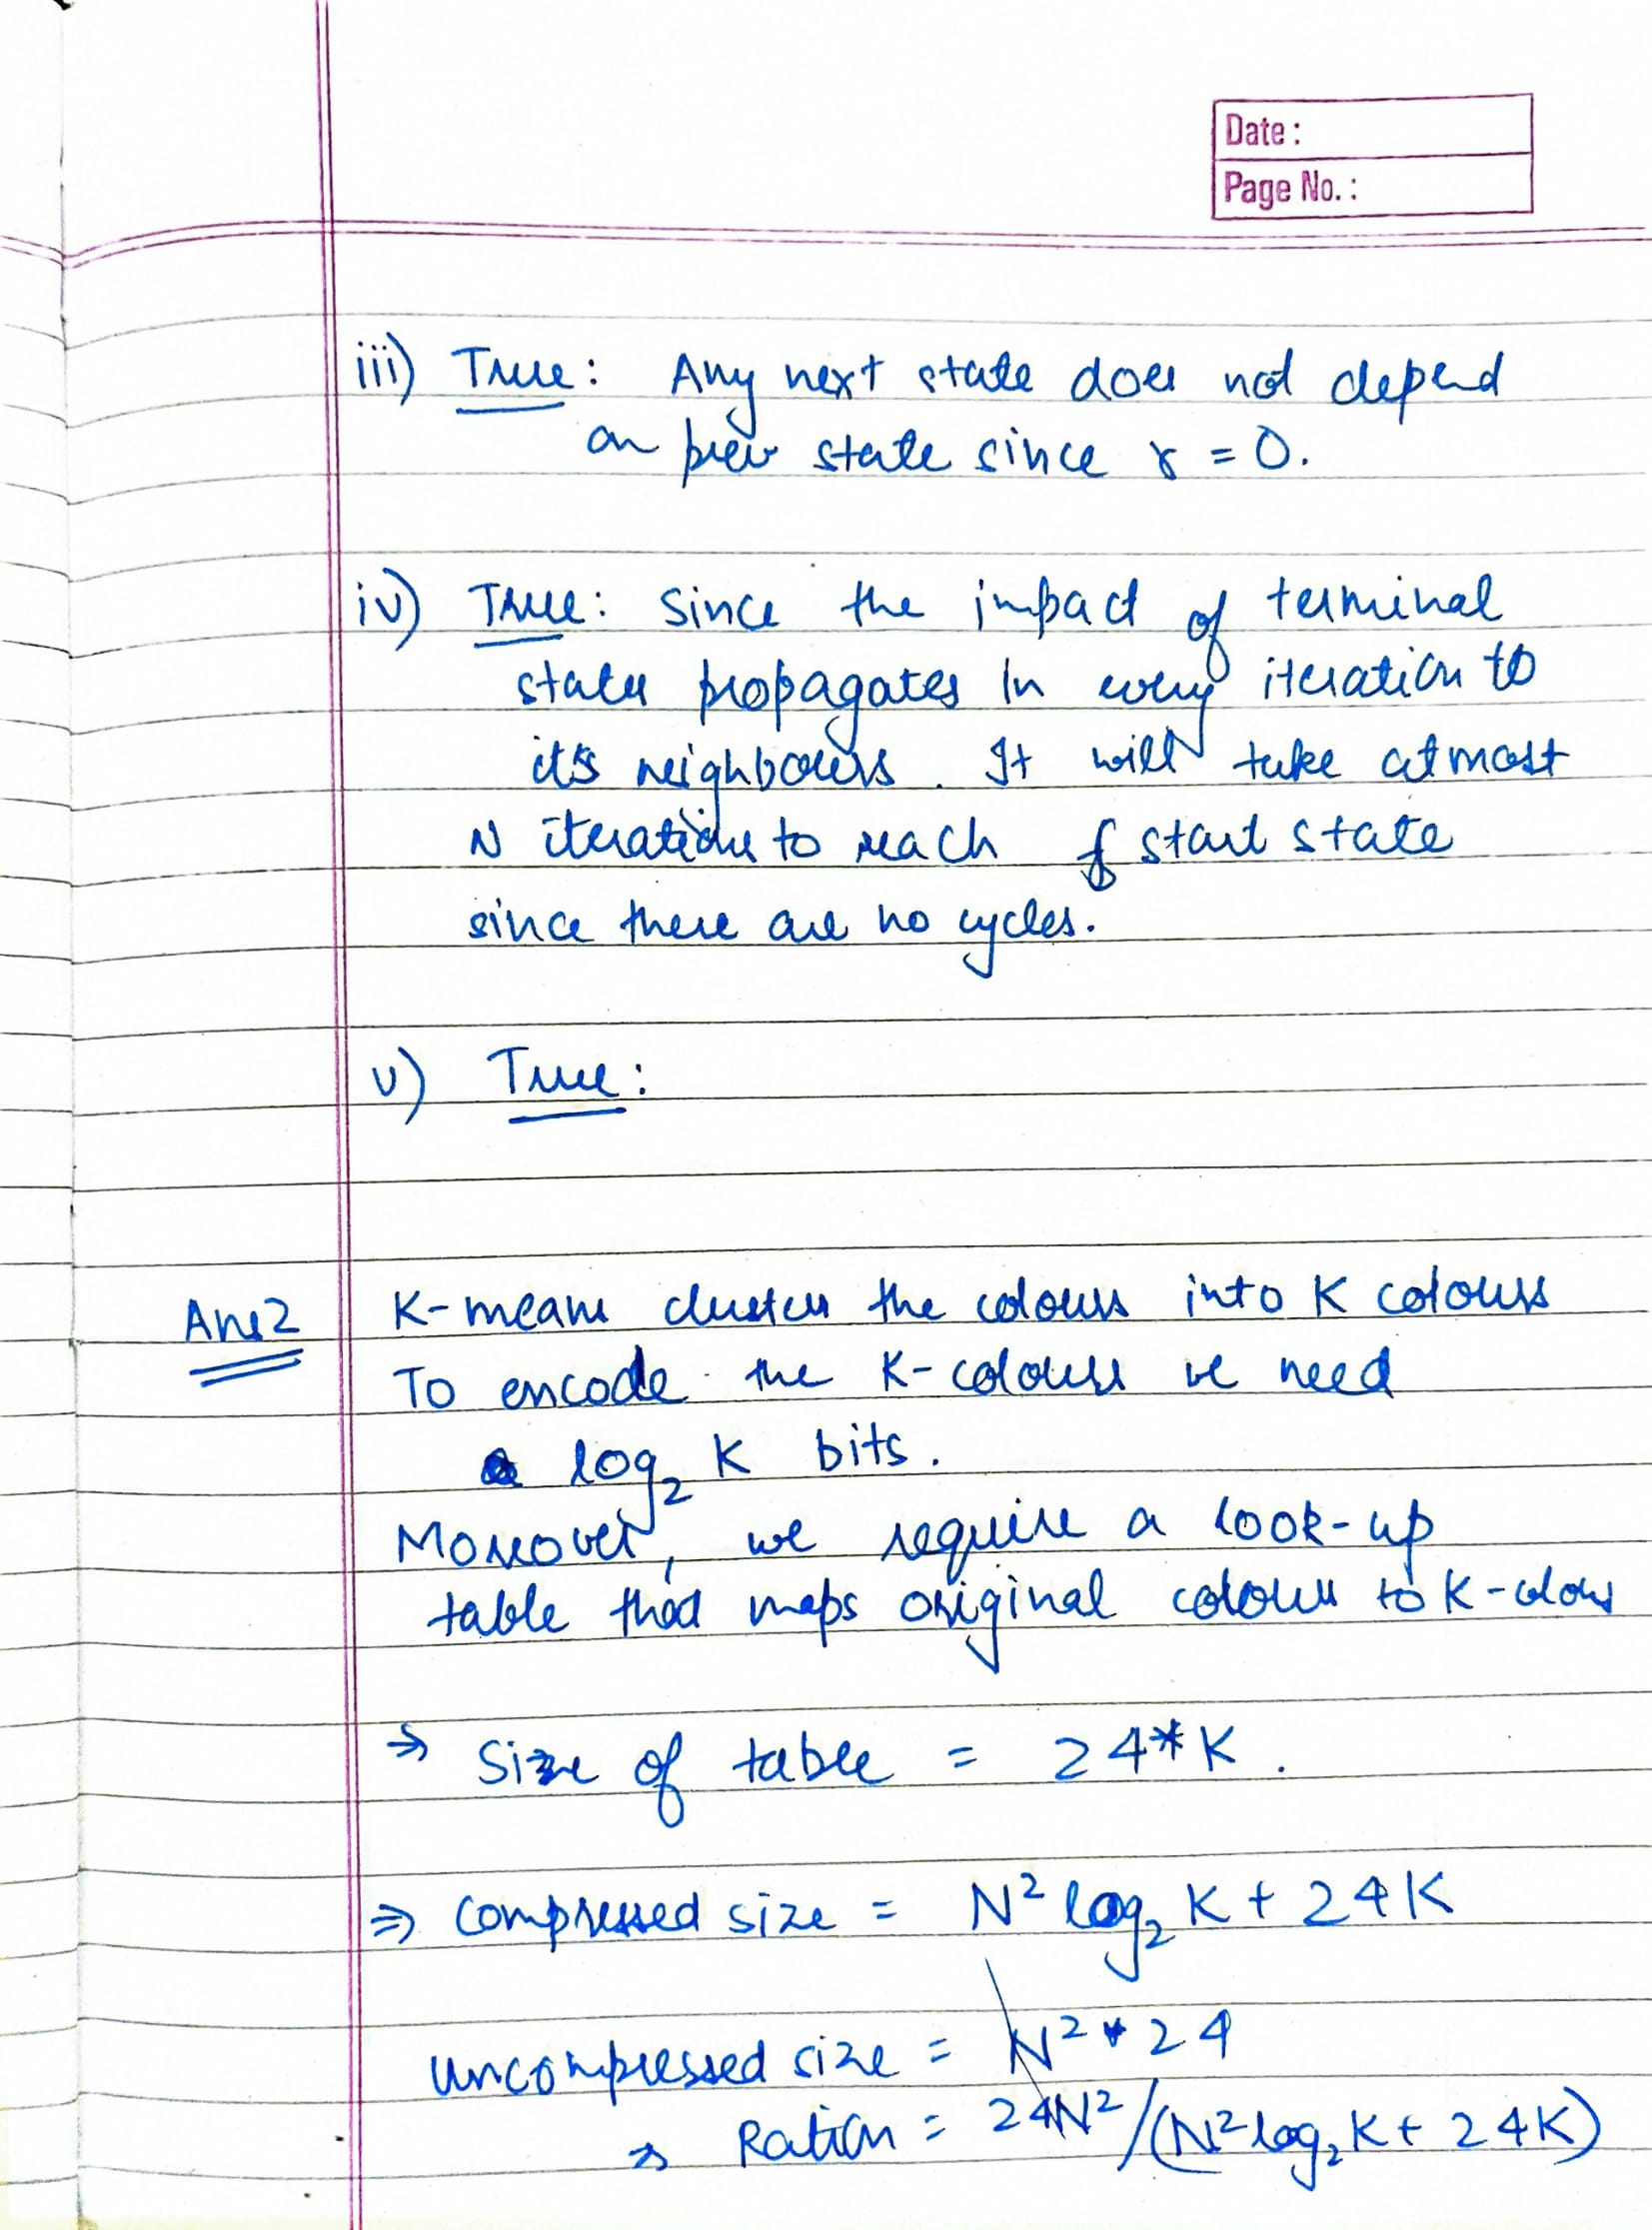 Date :
Page No. :
iii) True : Any next state does not depend
on prev state since γ = 0.
iv) True : Since the impact of terminal
states propagates in every iteration to
its neighbours. It will take atmost
N iterations to reach start state
since there are no cycles.
v) True :
Ans2 K-means clusters the colours into K colours
To encode the K-colours we need
log₂ K bits.
Moreover, we require a look-up
table that maps original colours to K-colours
⇒ Size of table = 24*K.
⇒ Compressed size = N² log₂ K + 24K
Uncompressed size = N² * 24
⇒ Ration = 24N²/(N² log₂ K + 24K)